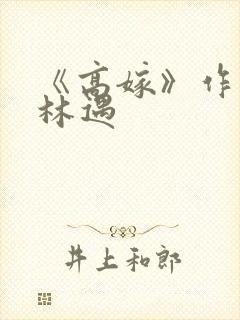 《高嫁》作
林遇
井上和郎